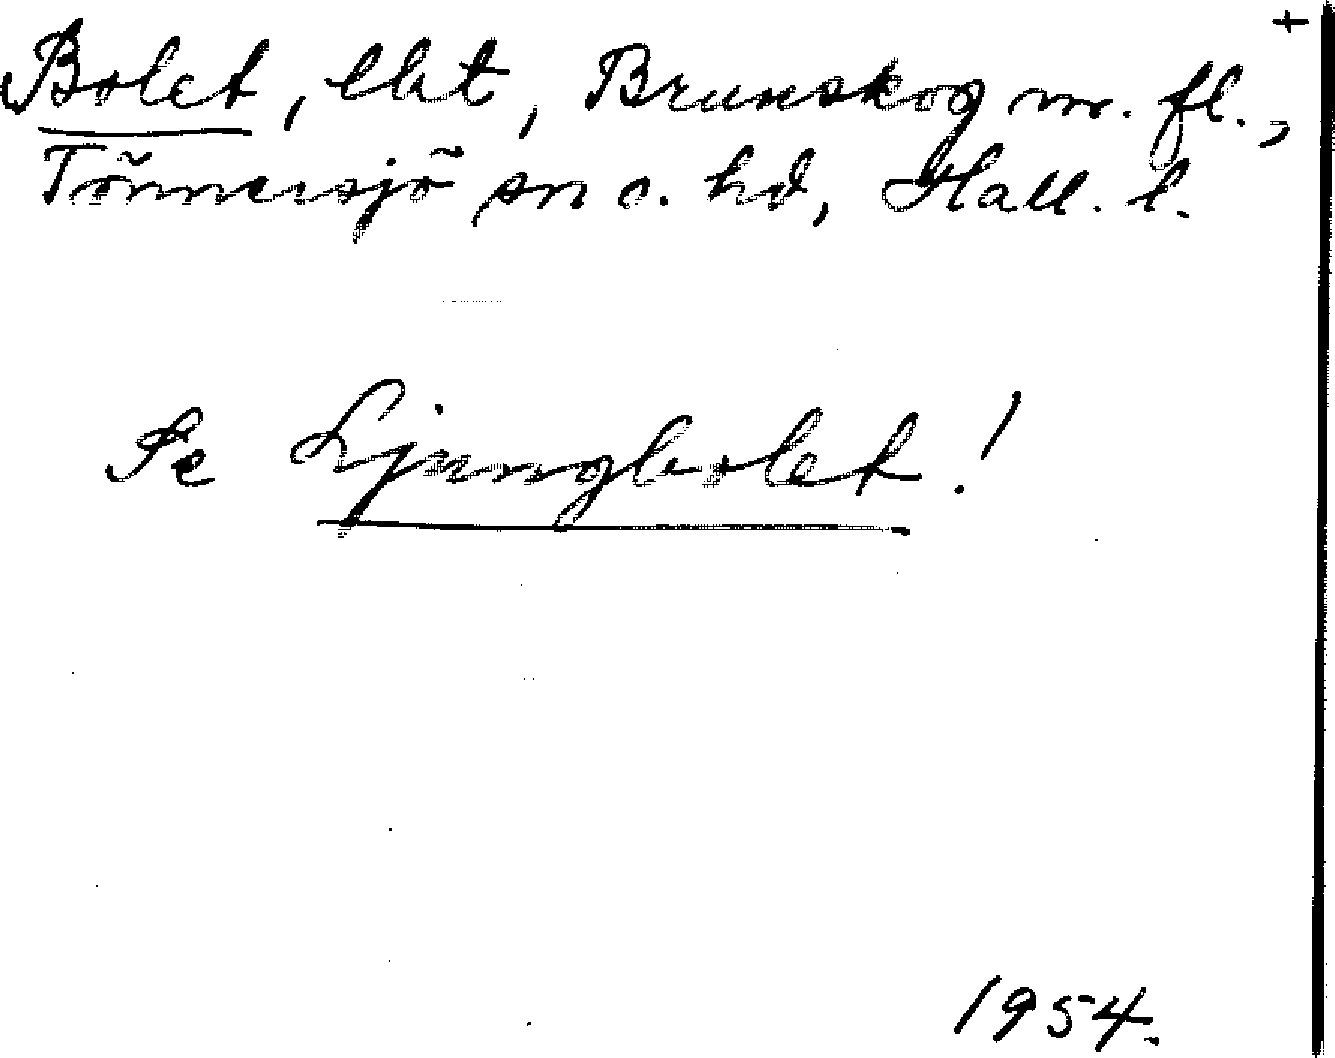 +
Bolet, lht, Brunskog m. fl.,
Tönnersjö sn o. hd, Hall. l.
Se Ljungbolet!
1954.